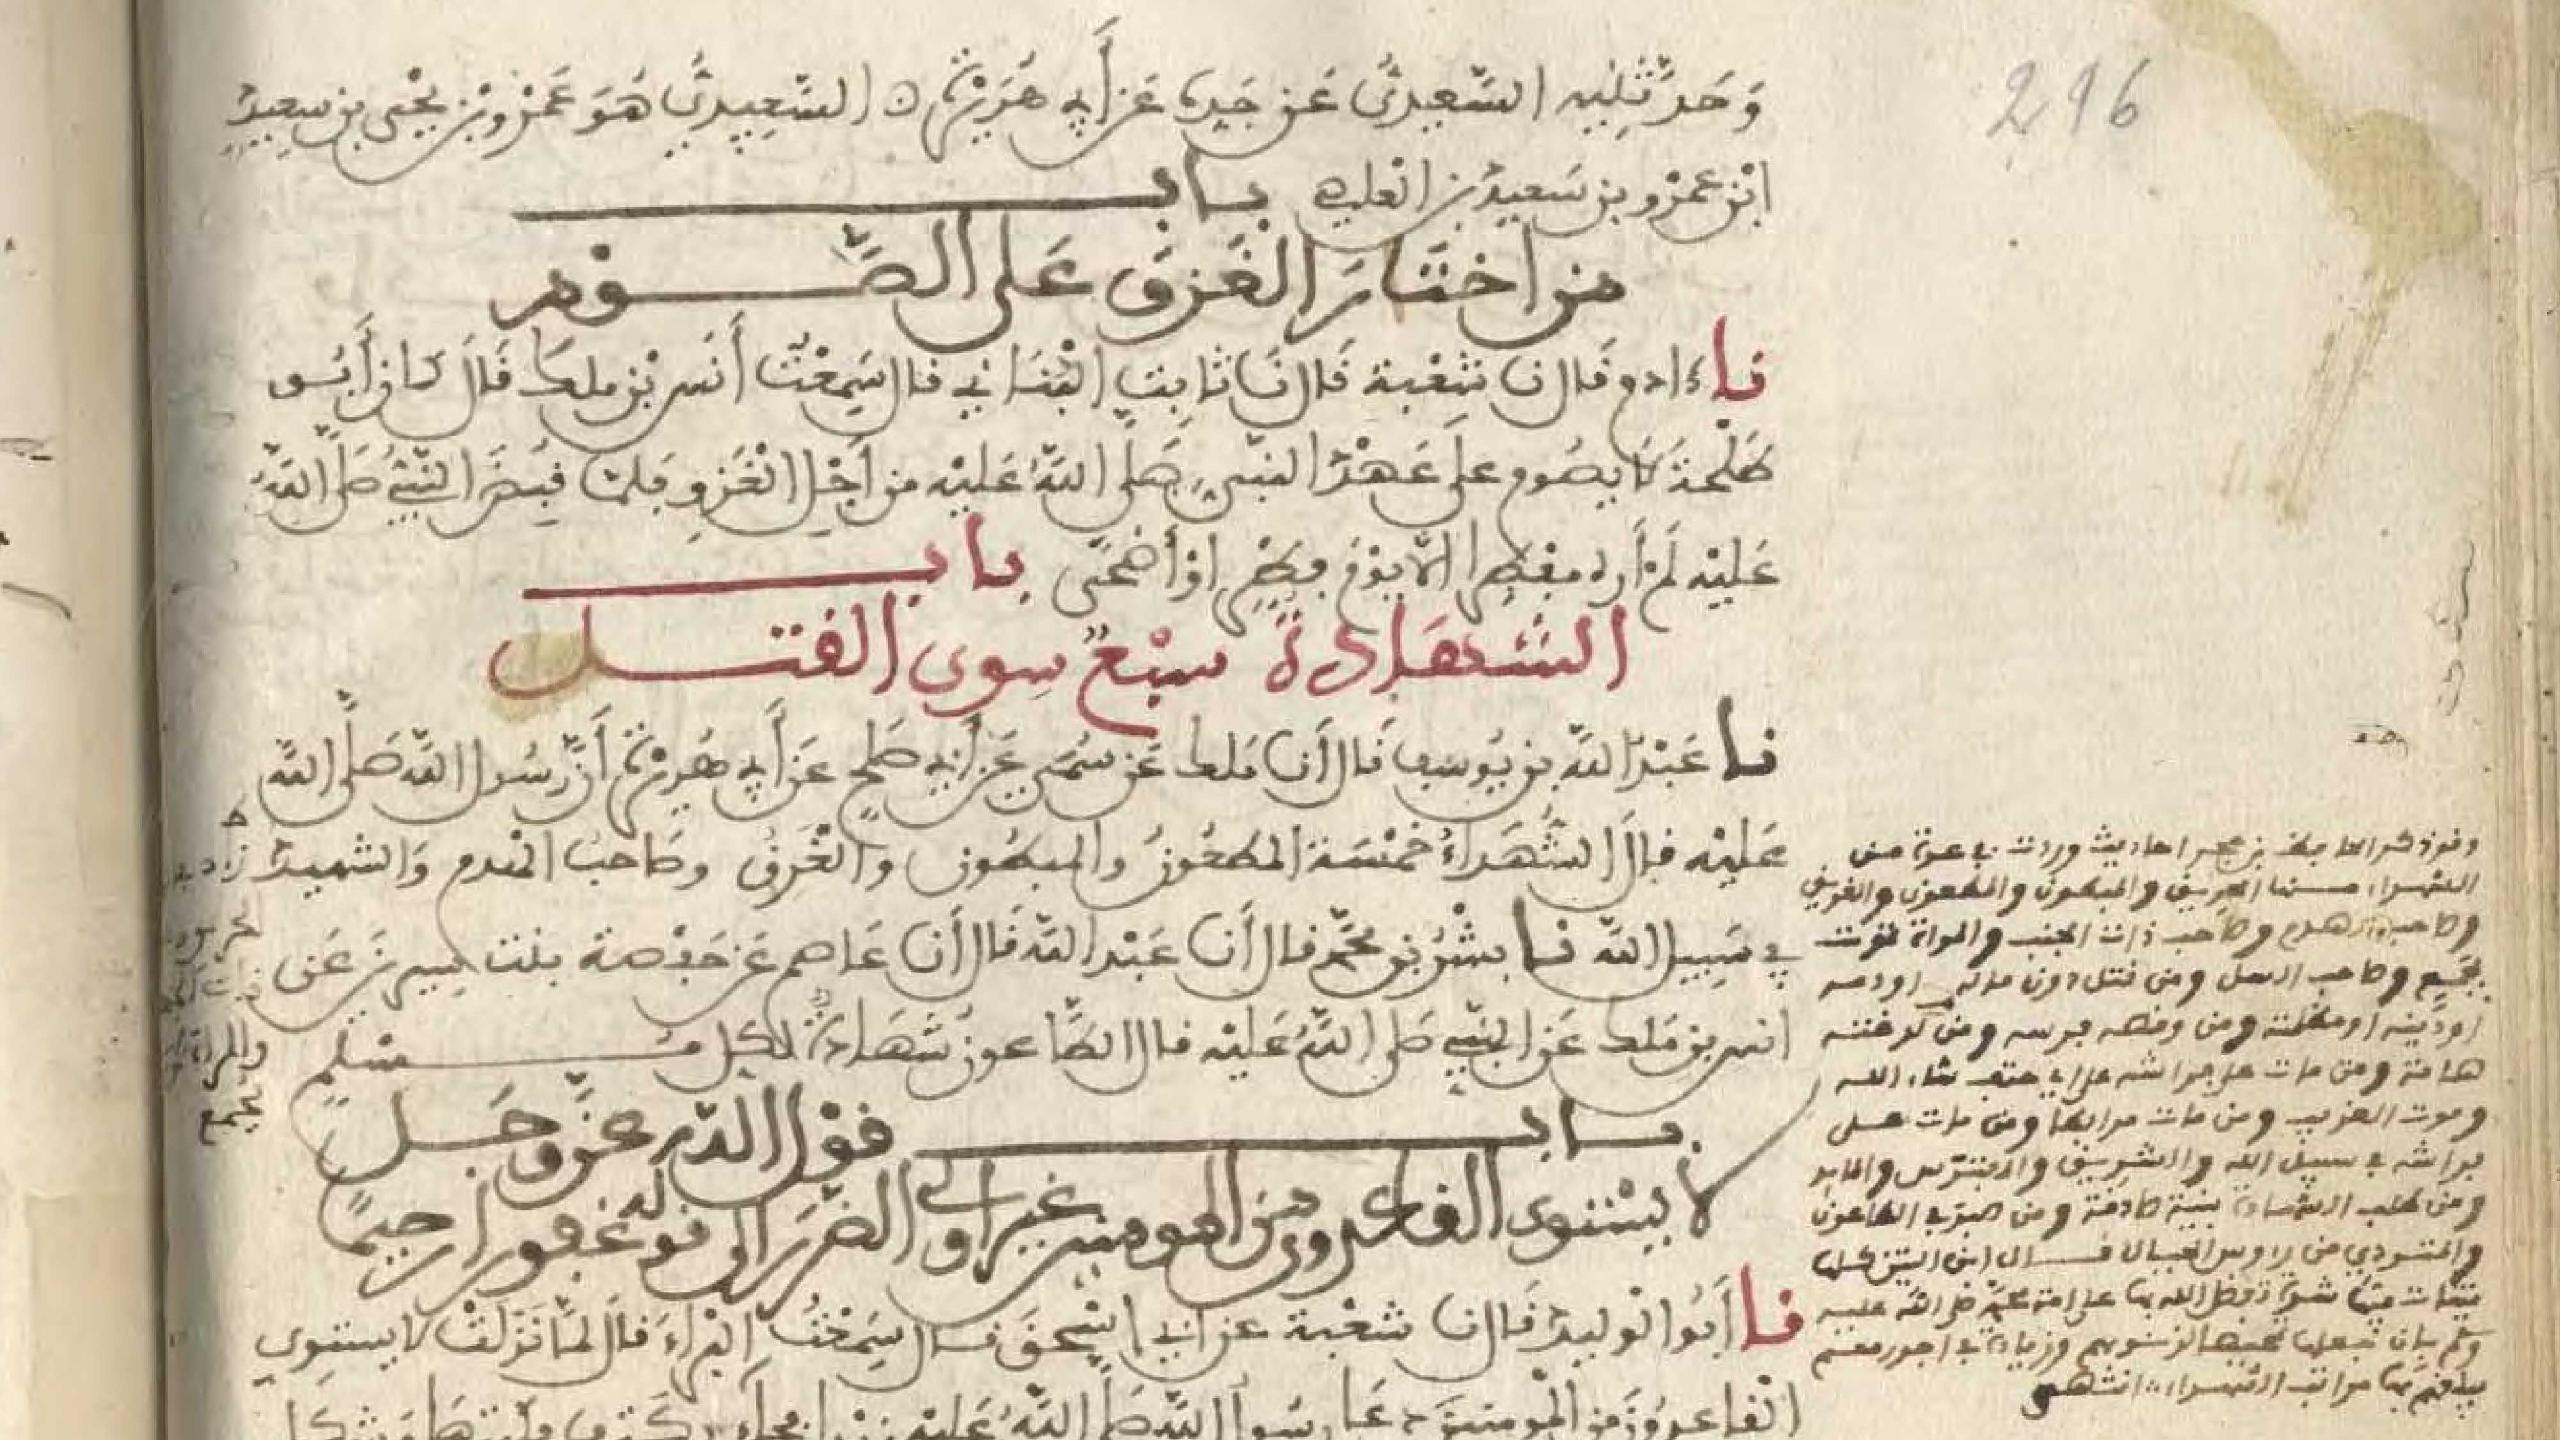 296
وَحَدَّثَنِيهِ السَّعِيدِيُّ عَن جَدِّهِ عَن أَبِي هُرَيْرَةَ ن السَّعِيدِيُّ هُوَ عَمْرُو بْنُ يَحْيَى بنِ سَعِيدِ
ابْنِ عَمْرِو بنِ سَعِيدِ بنِ العاصِ بــاب
مَن اخْتَارَ الغَزْوَ عَلى الصَّــوْمِ
نا ءادم قَالَ نا شُعْبَة قَالَ نَا ثَابِت البُنَانِي قال سَمِعْتُ أَنَسَ بْنَ ملك قَالَ كانَ أَبُو
طَلْحَةَ لَا يَصُوم على عَهْدِ النبيِّ صَلى اللهُ عَلَيْهِ مِن أَجْلِ الْغَزْوِ فلما قُبِضَ النَّبِيُّ صَلَّى اللهُ
عَلَيْهِ لَمْ أَرَهُ مُفْطِرا إلّا يَوْمَ فِطْرٍ أَوْ أَضْحَى بــاب
الشَّهَادَةُ سَبْعٌ سِوى القتــل
نـا عَبْدُ اللهِ بن يُوسف قَال أَنا مَلك عَن سُمَيٍّ عَن أَبي صَلح عَن أَبِي هُرَيْرَةَ أَنَّ رَسُولَ اللهِ صَلَّى الله
عَلَيْهِ قالَ الشُّهَدَاءُ خَمْسَة المَطعُونُ والمبطُون والغَرِقُ وصَاحبُ الهَدم وَالشهيدُ
في سَبِيلِ الله نـا بِشْرُ بن محمّد قال أَنا عَبْد الله قَال أَنا عَاصِم عَن حَفْصة بنت سِيرِينَ عَن
انس بن مَلك عَن النَّبي صَلى اللهُ عَلَيْه قال الطَّاعون شَهَادَةٌ لكل مُــسْلِمٍ
بــاب قوْل الله عزَّ وجَــل
لا يسْتوي القاعدون من المومنين غير أولي الضرر إلى قوله غفورا رحيمًا
نـا أَبُو الوليد قَال نا شعْبة عن أبي إسْحَق قــال سَمِعْتُ البَرَاءَ قَالَ لَمَّا نَزَلَتْ لا يستوي
القاعدُونَ مِن الْمومنينَ دَعَا رَسُولُ اللهِ صَلى اللهُ عَلَيْهِ زيْدا
وقد ذكر الحافظ بن حجر احاديث وردت في عدة من
الشهداء منها الحريق والمبطون والمطعون والغريق
وصاحب الهدم وصاحب ذات الجنب والمراة تموت
بجمع وصاحب السل ومن قتل دون ماله او دمه
او دينه او مظلمته ومن وقصه فرسه ومن لدغته
هامة ومن مات على فراشه على اي حتف شاء الله
وموت الغريب ومن مات مرابطا ومن مات على
فراشه في سبيل الله والشريق والذي يفترس والمايد
ومن طلب الشهادة بنية صادقة ومن صبر في الطاعون
والمتردي من رءوس الجبال قــال ابن التين كلها
ميتات فيها شدة تفضل الله بها على امة محمد صلى الله عليه
وسلم بان جعلها تمحيصا لذنوبهم وزيادة في اجورهم
يبلغهم بها مراتب الشهداء انتهى
زاد
والمراة
بجمع